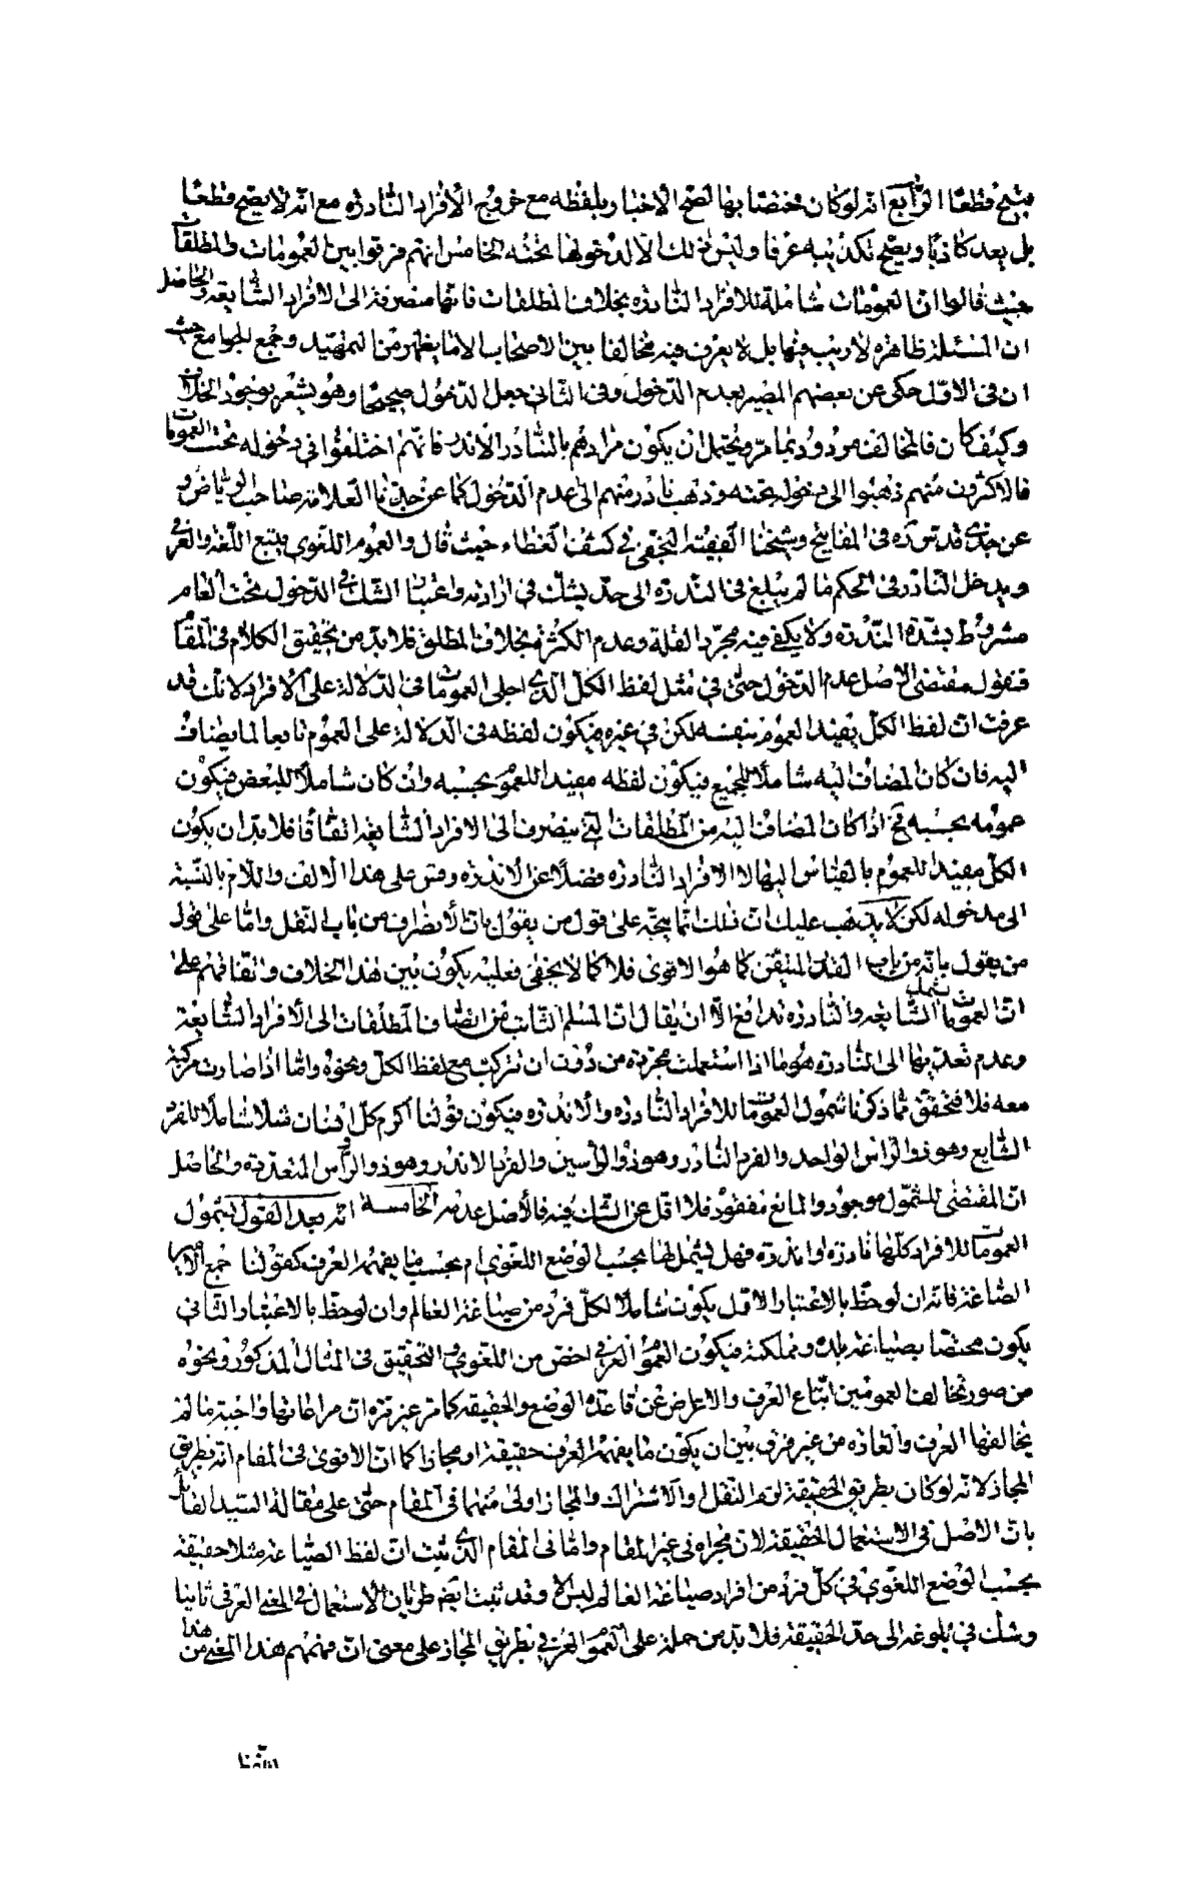 يقبح قطعا الرابع انه لو كان مختصا بها لصح الاخبار بلفظه مع خروج الافراد النادرة مع انه لا يصح قطعا
بل يعد كاذبا ويصح تكذيبه عرفا وليس ذلك الا لدخولها تحته الخامس انهم فرقوا بين العمومات والمطلقات
حيث قالوا ان العمومات شاملة للافراد النادرة بخلاف المطلقات فانها منصرفة الى الافراد الشايعة والحاصل
ان المسئلة ظاهرة لا ريب فيها بل لا يعرف فيه مخالفا بين الاصحاب الا ما يظهر من التمهيد وجمع الجوامع حيث
ان في الاول حكى عن بعضهم المصير بعدم الدخول وفى الثانى جعل الدخول صحيحا وهو يشعر بوجود الخلاف
وكيف كان فالمخالف مردود بما مر ويحتمل ان يكون مرادهم بالنادر الاندر فانهم اختلفوا في دخوله تحت العمومات
فالاكثرون منهم ذهبوا الى دخوله تحته وذهب نادر منهم الى عدم الدخول كما عن جدنا العلامة صاحب الرياض و
عن جدى قدس سره فى المفاتيح وشيخنا الفقيه النجفى في كشف الغطاء حيث قال والعموم اللغوى يتبع اللغة والعرفى
ويدخل النادر فى الحكم ما لم يبلغ فى الندرة الى حد يشك فى ارادته واعتبار الشك في الدخول تحت العام
مشروط بشدة الندرة ولا يكفى فيه مجرد القلة وعدم الكثرة بخلاف المطلق فلا بد من تحقيق الكلام فى المقام
فنقول مقتضى الاصل عدم الدخول حتى في مثل لفظ الكل الذى اجلى العمومات فى الدلالة على الافراد لانك قد
عرفت ان لفظ الكل يفيد العموم بنفسه لكن في غيره فيكون لفظه فى الدلالة على العموم تابعا لما يضاف
اليه فان كان المضاف اليه شاملا للجميع فيكون لفظه مفيد اللعموم بحسبه وان كان شاملا للبعض فيكون
عمومه بحسبه فح اذا كان المضاف اليه من المطلقات التى ينصرف الى الافراد الشايعة اتفاقا فلا بد ان يكون
الكل مفيدا للعموم بالقياس اليها لا الافراد النادرة فضلا عن الاندرة وقس على هذا الالف واللام بالنسبة
الى مدخوله لكن لا يذهب عليك ان ذلك انما يتجه على قول من يقول بان الانصراف من باب النقل واما على قول
من يقول بانه من باب القدر المتيقن كما هو الاقوى فلا كما لا يخفى فعليه يكون بين هذا الخلاف واتفاقهم على
ان العمومات تشمل الشايعة والنادرة تدافع الا ان يقال ان المسلم الثابت من انصراف المطلقات الى الافراد الشايعة
وعدم تعديها الى النادرة هو ما اذا استعملت مجردة من دون ان تركبت مع لفظ الكل ونحوه واما اذا صارت مركبة
معه فلا فتحقق مما ذكرنا شمول العمومات للافراد النادرة والاندرة فيكون قولنا اكرم كل انسان مثلا شاملا للفرد
الشايع وهو ذو الراس الواحد والفرد النادر وهو ذو الراسين والفرد الاندر وهو ذو الرأس المتعددة والحاصل
ان المقتضى للشمول موجود والمانع مفقود فلا اقل من الشك فيه فالاصل عدمه الخامسة انه بعد القول بشمول
العمومات للافراد كلها نادرة او اندرة فهل يشملها بحسب الوضع اللغوى ام بحسب ما يفهمه العرف كقولنا جمع الامير
الصاغة فانه ان لوحظ بالاعتبار الاول يكون شاملا لكل فرد من صياغة العالم وان لوحظ بالاعتبار الثانى
يكون مختصا بصياغة بلده ومملكته فيكون العموم العرفي اخص من اللغوى والتحقيق فى المثال المذكور ونحوه
من صور تخالف العمومين اتباع العرف والاعراض عن قاعدة الوضع والحقيقة كما مر غير مرة ان مراعاتها واجبة ما لم
يخالفها العرف والعادة من غير فرق بين ان يكون ما يفهمه العرف حقيقة او مجازا كما ان الاقوى فى المقام انه بطريق
المجاز لانه لو كان بطريق الحقيقة لزم النقل او الاشتراك والمجاز اولى منهما فى المقام حتى على مقالة السيد القائل
بان الاصل فى الاستعمال الحقيقة لان مجراه في غير المقام واما فى المقام الذى ثبت ان لفظ الصياغة مثلا حقيقة
بحسب الوضع اللغوى في كل فرد من افراد صياغة العالم ليس الا وقد ثبت ايضا طريان الاستعمال في المعنى العرفى ثانيا
وشك في بلوغه الى حد الحقيقة فلا بد من حمله على العموم العرفي بطريق المجاز على معنى ان فهمهم هذا المعنى من هذا
اللفظ